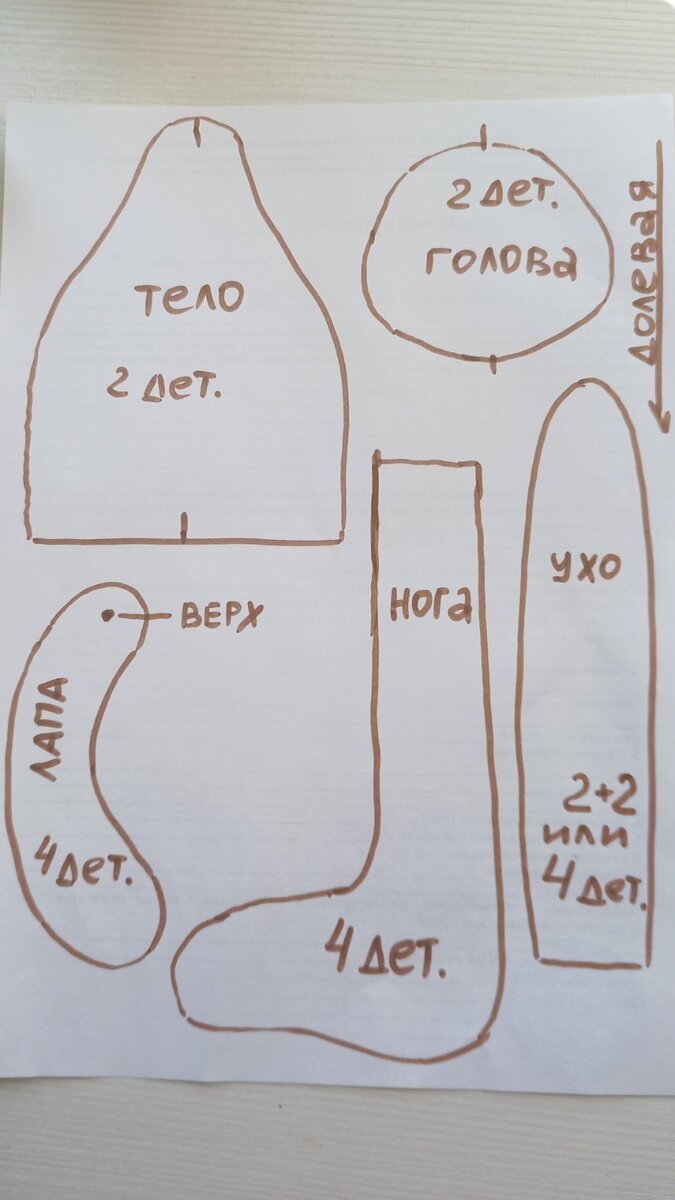 ТЕЛО
2 дет.
2 дет.
ГОЛОВА
ДОЛЕВАЯ
ВЕРХ
ЛАПА
4 дет.
НОГА
4 дет.
УХО
2+2
или
4 дет.